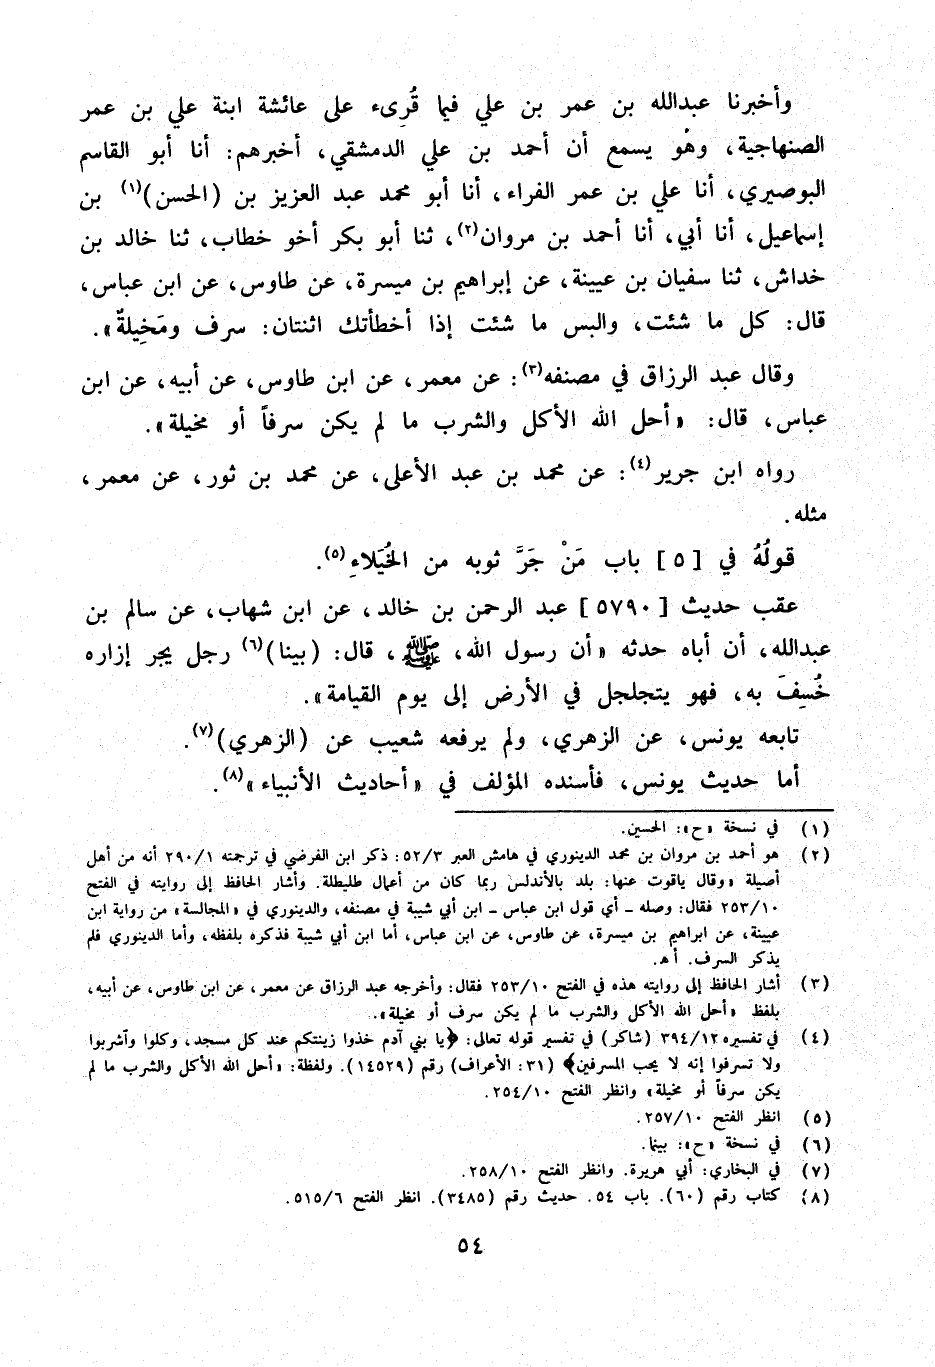 وأخبرنا عبدالله بن عمر بن علي فيما قُرِىء على عائشة ابنة علي بن عمر
الصنهاجية، وهُو يسمع أن أحمد بن علي الدمشقي، أخبرهم: أنا أبو القاسم
البوصيري، أنا علي بن عمر الفراء، أنا أبو محمد عبد العزيز بن (الحسن)(١) بن
إسماعيل، أنا أبي، أنا أحمد بن مروان(٢)، ثنا أبو بكر أخو خطاب، ثنا خالد بن
خداش، ثنا سفيان بن عيينة، عن إبراهيم بن ميسرة، عن طاوس، عن ابن عباس،
قال: كل ما شئت، والبس ما شئت إذا أخطأتك اثنتان: سرف ومَخِيلةٌ».
وقال عبد الرزاق في مصنفه(٣): عن معمر، عن ابن طاوس، عن أبيه، عن ابن
عباس، قال: «أحل الله الأكل والشرب ما لم يكن سرفاً أو مخيلة».
رواه ابن جرير(٤): عن محمد بن عبد الأعلى، عن محمد بن ثور، عن معمر،
مثله.
قولُهُ في [٥] باب مَنْ جَرَّ ثوبه من الخُيَلاءِ(٥).
عقب حديث [٥٧٩٠] عبد الرحمن بن خالد، عن ابن شهاب، عن سالم بن
عبدالله، أن أباه حدثه «أن رسول الله، ﷺ، قال: (بينا)(٦) رجل يجر إزاره
خُسِفَ به، فهو يتجلجل في الأرض إلى يوم القيامة».
تابعه يونس، عن الزهري، ولم يرفعه شعيب عن (الزهري)(٧).
أما حديث يونس، فأسنده المؤلف في «أحاديث الأنبياء»(٨).
(١) في نسخة «ح»: الحسين.
(٢) هو أحمد بن مروان بن محمد الدينوري في هامش العبر ٥٢/٣: ذكر ابن الفرضي في ترجمته ٢٩٠/١ أنه من أهل
أصيلة «وقال ياقوت عنها: بلد بالأندلس ربما كان من أعمال طليطلة. وأشار الحافظ إلى روايته في الفتح
٢٥٣/١٠ فقال: وصله - أي قول ابن عباس - ابن أبي شيبة في مصنفه، والدينوري في «المجالسة» من رواية ابن
عيينة، عن ابراهيم بن ميسرة، عن طاوس، عن ابن عباس، أما ابن أبي شيبة فذكره بلفظه، وأما الدينوري فلم
يذكر السرف. أ هـ.
(٣) أشار الحافظ إلى روايته هذه في الفتح ٢٥٣/١٠ فقال: وأخرجه عبد الرزاق عن معمر، عن ابن طاوس، عن أبيه،
بلفظ «أحل الله الأكل والشرب ما لم يكن سرف أو مخيلة».
(٤) في تفسيره ٣٩٤/١٢ (شاكر) في تفسير قوله تعالى: ﴿يا بني آدم خذوا زينتكم عند كل مسجد، وكلوا وآشربوا
ولا تسرفوا إنه لا يحب المسرفين﴾ (٣١: الأعراف) رقم (١٤٥٢٩). ولفظة: «أحل الله الأكل والشرب ما لم
يكن سرفاً أو مخيلة» وانظر الفتح ٢٥٤/١٠.
(٥) انظر الفتح ٢٥٧/١٠.
(٦) في نسخة «ح»: بينما.
(٧) في البخاري: أبي هريرة. وانظر الفتح ٢٥٨/١٠.
(٨) كتاب رقم (٦٠). باب ٥٤. حديث رقم (٣٤٨٥). انظر الفتح ٥١٥/٦.
٥٤